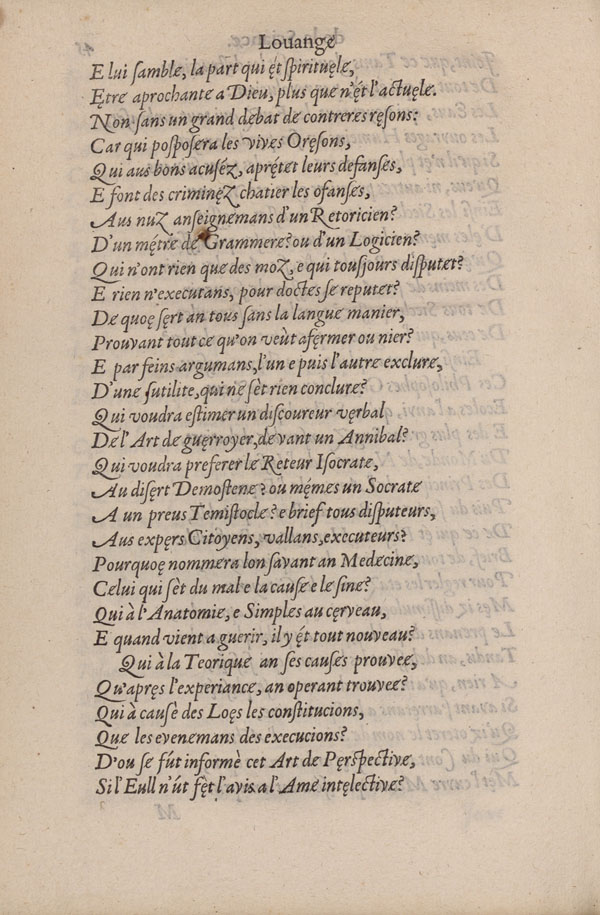 Louange
E lui samble, la part qui ę́t spirituęle,
Ę́tre aprochante a Dieu, plus que n'ę́t l'actuęle.
Non sans un grand debat de contreres ręsons:
Car qui posposera les vives Oręsons,
Qui aus bons acuséz, aprę́tet leurs defanses,
E font des criminęz chatier les ofanses,
Aus nuz anseignemans d'un Retoricien?
D'un mę́tre de Grammere? ou d'un Logicien?
Qui n'ont rien que des moz, e qui tousjours disputet?
E rien n'executans, pour doctes se reputet?
De quoę sęrt an tous sans la langue manier,
Prouvant tout ce qu'on veùt afęrmer ou nier?
E par feins argumans, l'un e puis l'autre exclure,
D'une sutilite, qui ne sèt rien conclure?
Qui voudra estimer un discoureur vęrbal
De l'Art de guęrroyer, devant un Annibal?
Qui voudra preferer le Reteur Isocrate,
Au disęrt Demostene? ou mémes un Socrate
A un preus Temistocle? e brief tous disputeurs,
Aus expęrs Citoyens, vallans, executeurs?
Pourquoę nommera lon savant an Medecine,
Celui qui sèt du mal e la cause e le sine?
Qui à l'Anatomie, e Simples au cęrveau,
E quand vient a guerir, il y ę́t tout nouveau?
Qui à la Teorique an ses causes prouvee,
Qu'apręs l'experiance, an operant trouvee?
Qui à causè des Loęs les constitucions,
Que les evenemans des execucions?
D'ou se fút informè cet Art de Pęrspective,
Si l'Eull n'út fęt l'avis a l'Ame intęlective?